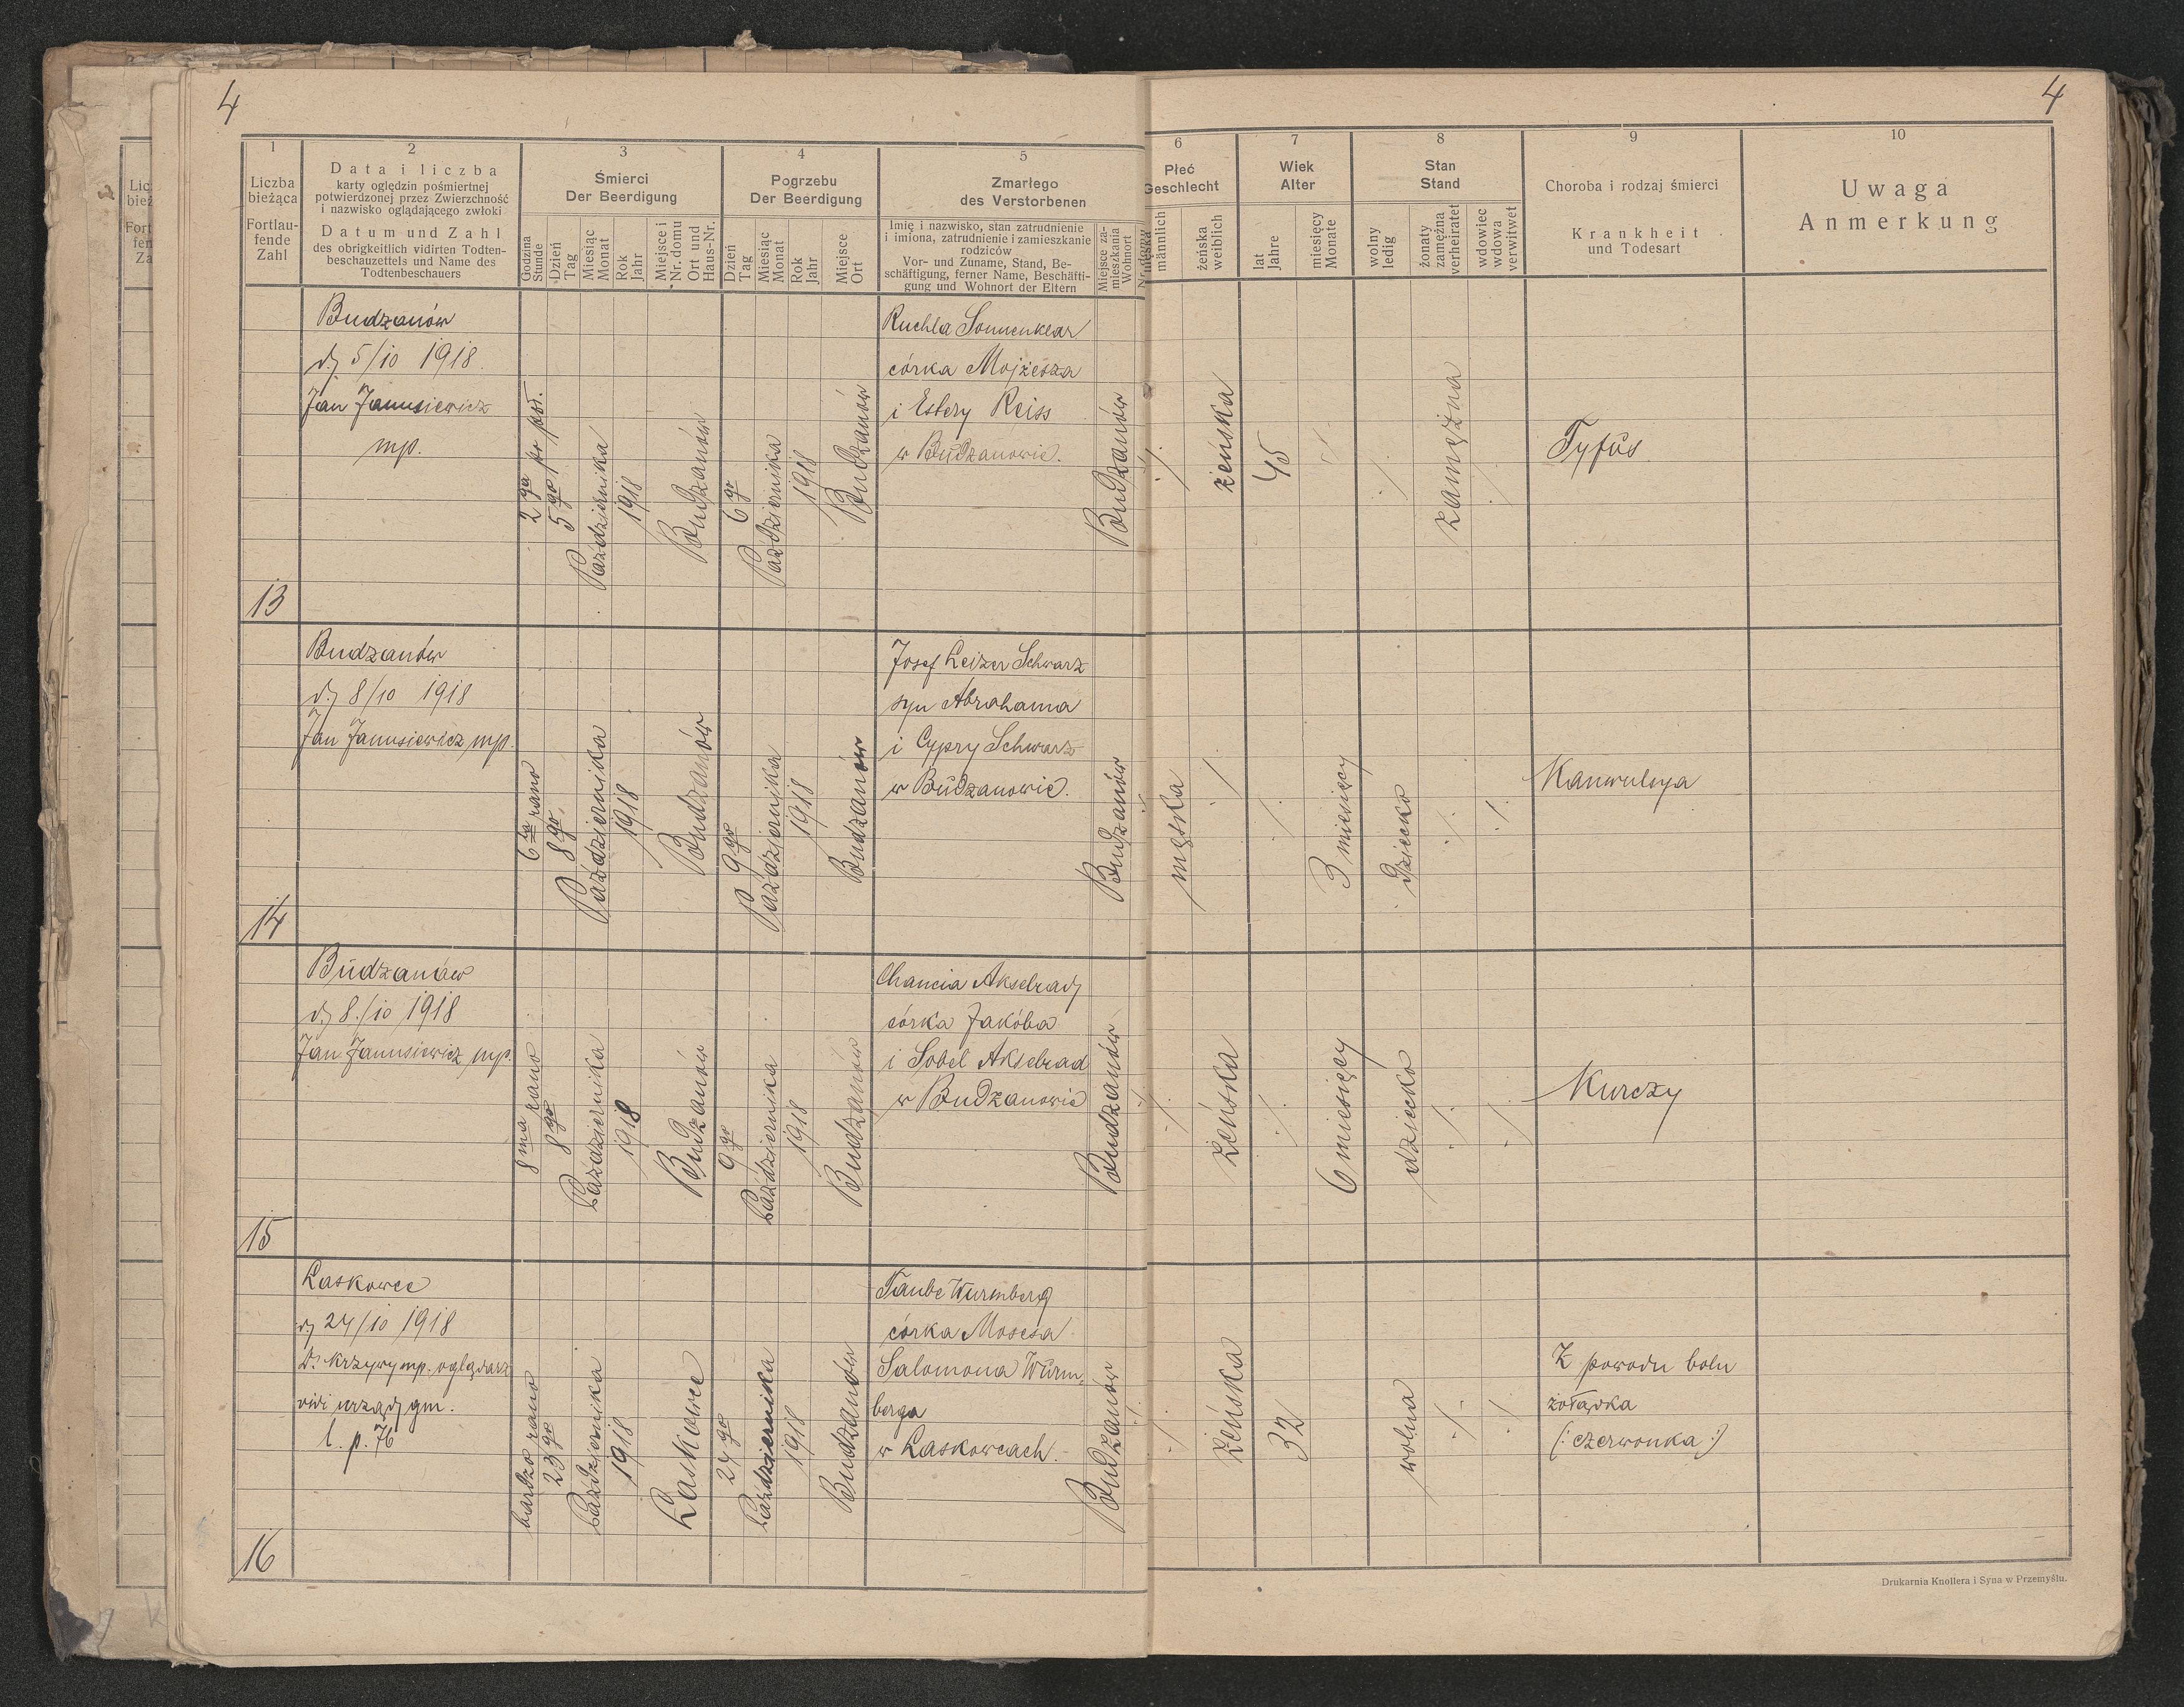 4
4
1
Liczba
bieżąca
Fortlau-
fende
Zahl
2
Data i liczba
karty oględzin pośmiertnej
potwierdzonej przez Zwierzchność
i nazwisko oglądającego zwłoki
Datum und Zahl
des obrigkeitlich vidirten Todten-
beschauzettels und Name des
Todtenbeschauers
3
Śmierci
Der Beerdigung
Godzina
Stunde
Dzień
Tag
Miesiąc
Monat
Rok
Jahr
Miejsce i
Nr. domu
Ort und
Haus-Nr.
4
Pogrzebu
Der Beerdigung
Dzień
Tag
Miesiąc
Monat
Rok
Jahr
Miejsce
Ort
5
Zmarłego
des Verstorbenen
Imię i nazwisko, stan zatrudnienie
i imiona, zatrudnienie i zamieszkanie
rodziców
Vor- und Zuname, Stand, Be-
schäftigung, ferner Name, Beschäfti-
gung und Wohnort der Eltern
Miejsce za-
mieszkania
Wohnort
6
Płeć
Geschlecht
męska
männlich
żeńska
weiblich
7
Wiek
Alter
lat
Jahre
miesięcy
Monate
8
Stan
Stand
wolny
ledig
żonaty
zamężna
verheiratet
wdowiec
wdowa
verwitwet
9
Choroba i rodzaj śmierci
Krankheit
und Todesart
10
Uwaga
Anmerkung
13
Budzanów
d. 5/10 1918.
Jan Janusiewicz
mp.
2 ga po poł.
5 go
Października
1918
Budzanów
6 go
Października
1918
Budzanów
Ruchla Sonnenklar
córka Mojżesza
i Estery Reiss
w Budzanowie.
Budzanów
./.
żeńska
45
./.
./.
zamężna
./.
Tyfus
14
Budzanów
d. 8/10 1918
Jan Janusiewicz mp.
6 ta rano
8 go
Października
1918
Budzanów
9 go
Października
1918
Budzanów
Josef Leizer Schwarz
syn Abrahama
i Cypry Schwarz
w Budzanowie.
Budzanów
męska
./.
./.
3 miesięcy
Dziecko
./.
./.
Kanwulsya
15
Budzanów
d. 8./10 1918
Jan Janusiewicz mp.
8 ma rano
8 go
Października
1918
Budzanów
9 go
Października
1918
Budzanów
Chancia Akselrad
córka Jakóba
i Sobel Akselrad
w Budzanowie
Budzanów
./.
./.
żeńska
./.
6 miesięcy
dziecko
./.
./.
Kurczy
16
Laskowce
d. 24/10 1918
Krzywy mp. oglądarz
vidi urząd gm.
l. p. 76
bardzo rano
23 go
Października
1918
Laskowce
24 go
Października
1918
Budzanów
Taube Wurmberg
córka Mosesa
Salomona Wurm-
berga
w Laskowcach.
Budzanów
./.
./.
żeńska
32
wolna
./.
./.
Z powodu bolu
żołądka
(: czerwonka :)
Drukarnia Knollera i Syna w Przemyślu.